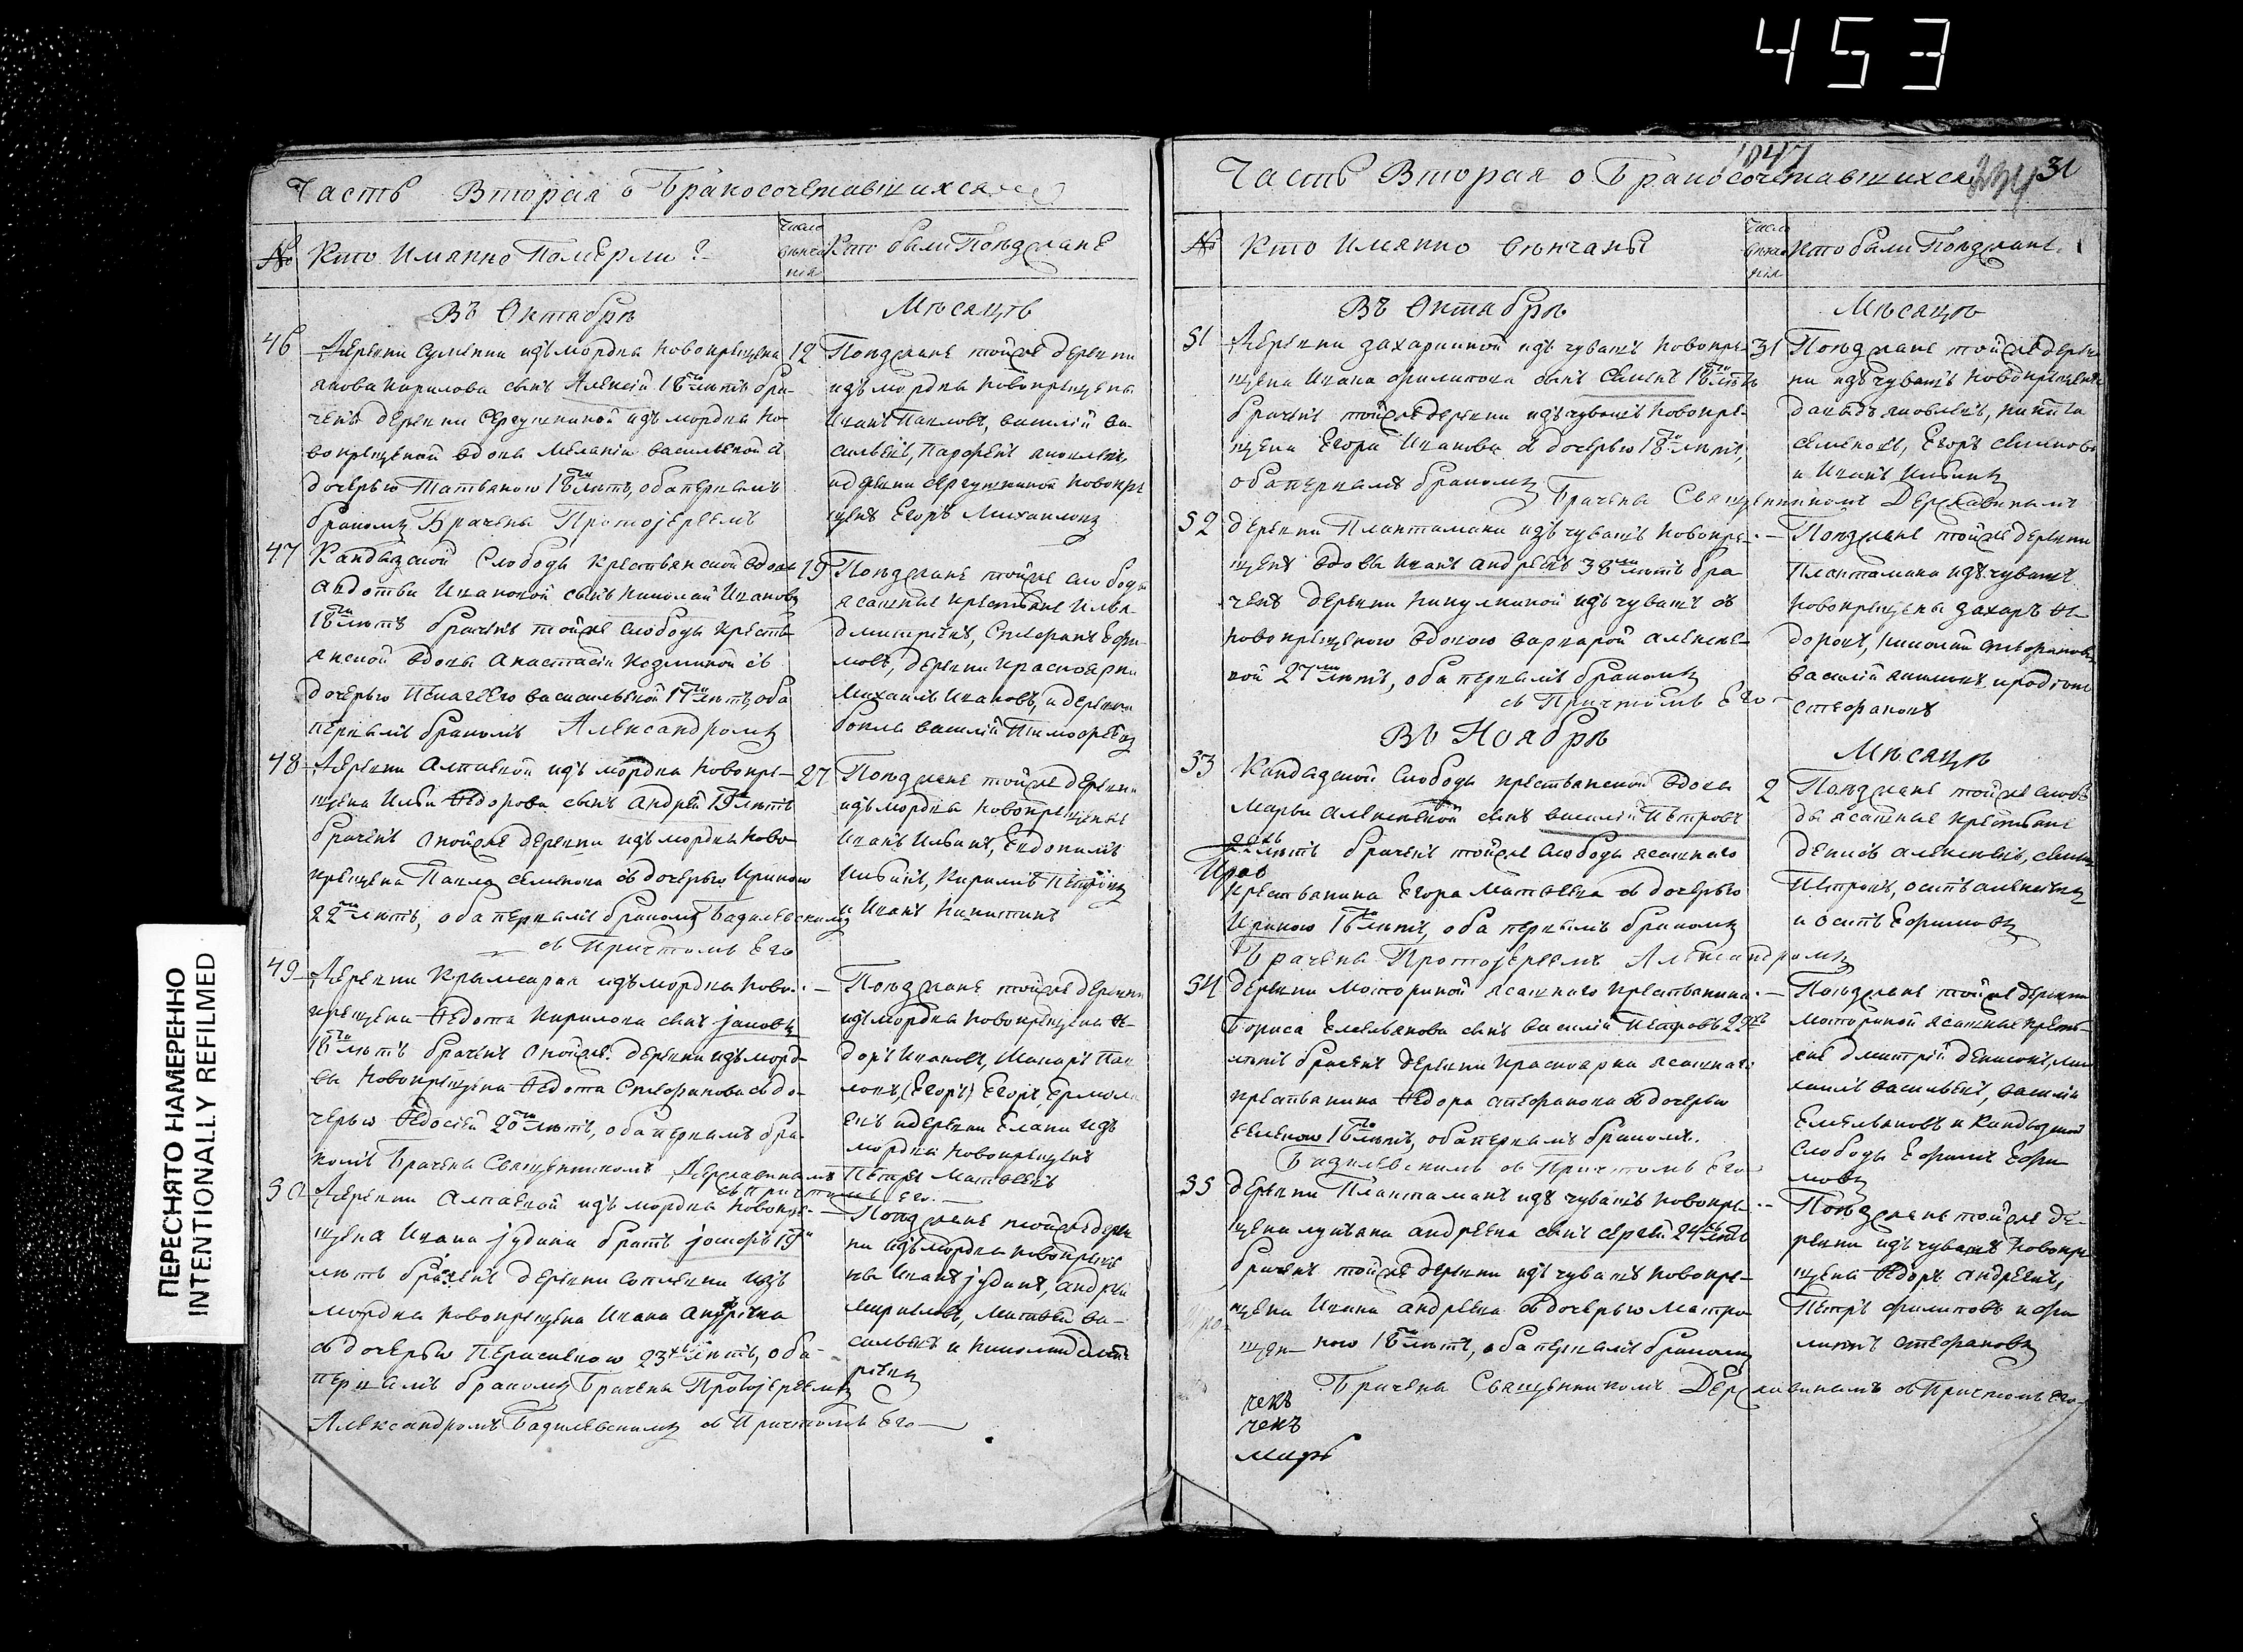 453
ПЕРЕСНЯТО НАМЕРЕННО
INTENTIONALLY REFILMED
Часть Вторая о Бракосочетавшихся
№
Кто Имянно Померли?
Число венчания
Кто были Поезжане
Въ Октябрѣ
Мѣсяцѣ
46
Деревни изъ мордвы новокрещена
якова кирилова сынъ Алексѣй 18 лѣтъ бра-
ченъ деревни Сергушкиной изъ мордвы но-
вокрещеной вдовы Меланіи васильевой съ
дочерью Татьяною 18 лѣтъ, оба первымъ
бракомъ Брачены Протоіереемъ
12
Поезжане тойже деревни
изъ мордвы новокрещены
Иванъ Павловъ, василій ва-
сильевъ, яковлевъ,
и деревни сергушкиной новокре
щенъ Егоръ Михаиловъ
47
Кандызской Слободы крестьянской вдовы
Авдотьи Ивановой сынъ Николай Ивановъ
18 лѣтъ браченъ тойже слободы кресть-
янской вдовы Анастасіи Козминой съ
дочерью Пелагеею васильевой 17 лѣтъ, оба
первымъ бракомъ Александромъ
19
Поезжане тойже слободы
ясашные крестьяне Илья
дмитріевъ, Стефанъ Ефи-
мовъ, деревни красноярки
Михаилъ Ивановъ, и деревни
василій Тимофеевъ
48
Деревни Алпаевой изъ мордвы новокре-
щена Ильи Ѳедорова сынъ Андрей 19 лѣтъ
браченъ тойже деревни изъ мордвы ново
крещена Павла семенова съ дочерью Ириною
22 лѣтъ, оба первымъ бракомъ Бадилевскимъ
съ Причтомъ Его
27
Поезжане тойже деревни
изъ мордвы новокрещены
Иванъ Ильинъ, Евдокимъ
Ильинъ, Кирилъ Петровъ
и Иванъ Никитинъ
49
Деревни изъ мордвы ново-
крещена Ѳедота Кирилова сынъ јаковъ
18 лѣтъ браченъ тойже деревни изъ морд-
вы новокрещена Ѳедота Стефанова съ до-
черью Ѳедосьей 20 лѣтъ, оба первымъ бра-
комъ Брачены Священникомъ Державинымъ
съ причтомъ Его.
Поезжане тойже деревни
изъ мордвы новокрещены Ѳе-
доръ Ивановъ, Макаръ Пав
ловъ, (Егоръ) Егоръ Ермола
евъ и деревни Елани изъ
мордвы новокрещенъ
Петръ Матвеевъ
50
Деревни Алпаевой изъ мордвы новокре-
щена Ивана јудина братъ јосифъ 19
лѣтъ браченъ деревни изъ
мордвы новокрещена Ивана Андрѣева
съ дочерью Перасковею 23 лѣтъ, оба
первымъ бракомъ Брачены Протоіереемъ
Александромъ Бадилевскимъ съ Причтомъ Его
Поезжане тойже дерев
ни изъ мордвы новокреще
ны Иванъ јудинъ, Андрей
Кириловъ, Матвей ва-
сильевъ и Николай
Часть Вторая о Бракосочетавшихся
1047
234
31
№
Кто Имянно венчаны
Число венчания
Кто были Поезжане
Въ Октябрѣ
Мѣсяцѣ
51
Деревни захаркиной изъ чувашъ новокре-
щена Ивана филипова сынъ Семенъ 18 лѣтъ
браченъ тойже деревни изъ чувашъ новокре-
щена Егора Иванова съ дочерью 18 лѣтъ,
оба первымъ бракомъ
Брачены Священникомъ Державинымъ
31
Поезжане тойже дерев
ни изъ чувашъ новокрещены
давыдъ яковлевъ, никита
семеновъ, Егоръ семеновъ
и Иванъ Ильинъ
52
деревни Плантамаки изъ чувашъ новокре-
щенъ вдовы Иванъ Андреевъ 38 лѣтъ бра
ченъ деревни Никулкиной изъ чувашъ съ
новокрещеною вдовою варварой алексее-
вой 27 лѣтъ, оба первымъ бракомъ
съ Причтомъ Его
Поезжане тойже деревни
Плантамаки изъ чувашъ
новокрещены захаръ Ѳе-
доровъ, Николай стефановъ
василій и родіонъ
стефановъ
Въ Ноябрѣ
Мѣсяцѣ
53
Кандызской слободы крестьянской вдовы
Марьи Алексѣевой сынъ василій Петровъ
22 лѣтъ браченъ тойже слободы ясашнаго
Ирав
крестьянина Егора Матвеева съ дочерью
Ириною 16 лѣтъ, оба первымъ бракомъ
Брачены Протоіереемъ Александромъ
2
Поезжане тойже слобо
ды ясашные крестьяне
денисъ алексѣевъ, семенъ
Петровъ, осипъ алексѣевъ
и осипъ Ефимовъ
54
деревни Моториной ясашнаго крестьянина
Бориса Емельянова сынъ василій Петровъ 23
лѣтъ браченъ деревни красноярки ясашнаго
крестьянина Ѳедора стефанова съ дочерью
еленою 16 лѣтъ, оба первымъ бракомъ.
Бадилевскимъ съ Причтомъ Его
Поезжане тойже деревни
моториной ясашные кресть-
яне дмитрій денисовъ, ми
хаилъ васильевъ, василій
Емельяновъ и Кандызской
Слободы Ефимъ Ефи-
мовъ
55
деревни Плантамакъ изъ чувашъ новокре-
щена лукьяна андреева сынъ сергей 24 лѣтъ
браченъ тойже деревни изъ чувашъ новокре-
щена Ивана андреева съ дочерью Матро
ною 18 лѣтъ, оба первымъ бракомъ
Брачены Священникомъ Державинымъ съ Причтомъ Его
Поезжане тойже де-
ревни изъ чувашъ новокре
щены Ѳедоръ андреевъ,
Петръ филиповъ и фи
липъ стефановъ
щен
ченъ
ченъ